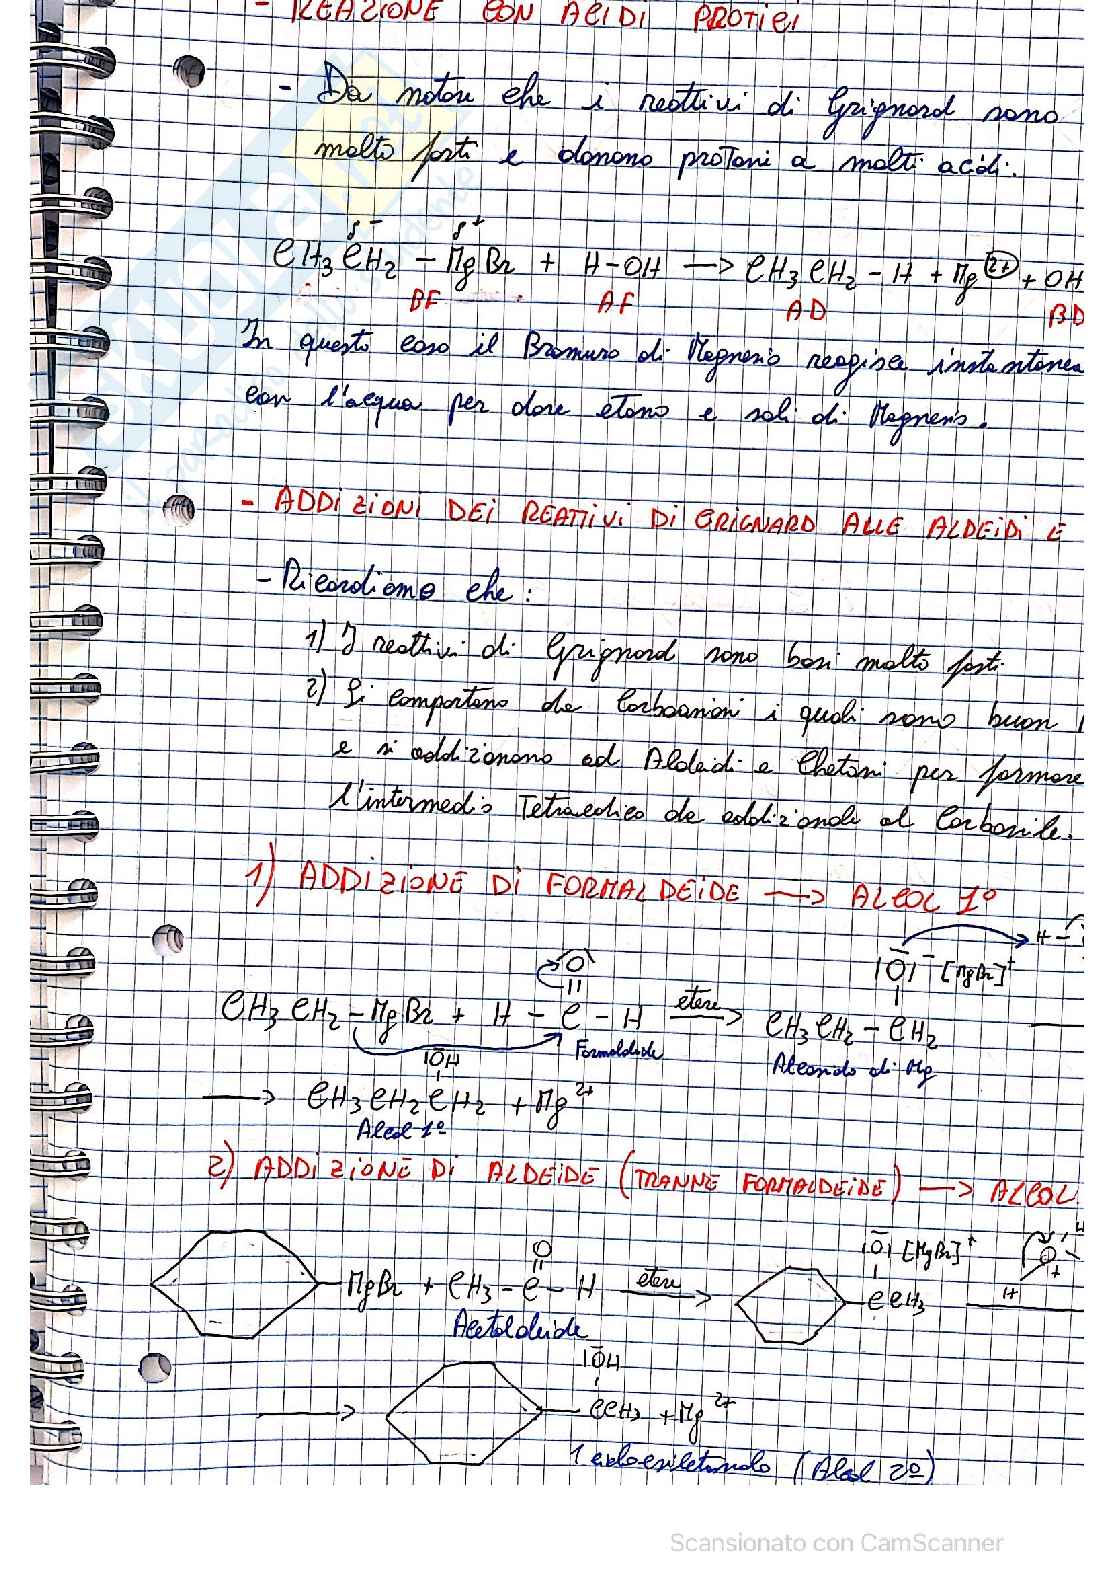 - REAZIONE CON ACIDI PROTICI
- Da notare che i reattivi di Grignard sono
molto forti e donano protoni a molti acidi.
δ- δ+
CH3CH2-MgBr + H-OH → CH3CH2-H + Mg2+ + OH
BF AF AD BD
In questo caso il Bromuro di Magnesio reagisce instantanea
con l'acqua per dare etano e sali di Magnesio.
- ADDIZIONI DEI REATTIVI DI GRIGNARD ALLE ALDEIDI E
- Ricordiamo che:
1) I reattivi di Grignard sono basi molto forti
2) Si comportano da Carboanioni i quali sono buon
e si addizionano ad Aldeidi e Chetoni per formare
l'intermedio Tetraedico da addizionale al Carbonile.
1) ADDIZIONE DI FORMALDEIDE → ALCOL 1º
H-
O |O|- [MgBr]+
CH3CH2-MgBr + H-C-H etere → CH3CH2-CH2
Formaldeide Alcossido di Mg
|OH
→ CH3CH2CH2 + Mg2+
Alcol 1º
2) ADDIZIONE DI ALDEIDE (TRANNE FORMALDEIDE) → ALCOL
O |O| [MgBr]+
MgBr + CH3-C-H etere → CCH3 H
Acetaldeide
|OH
→ CCH3 + Mg2+
1 cicloesiletanolo (Alcol 2º)
Scansionato con CamScanner